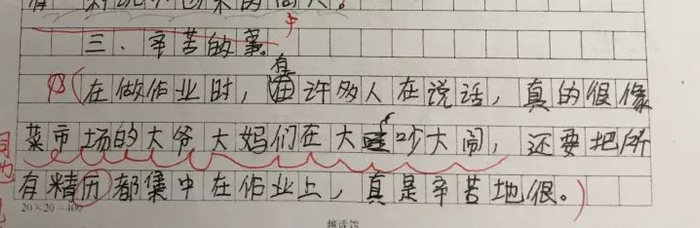 三、辛苦的
(在做作业时，有许多人在说话，真的很像
菜市场的大爷大妈们在大吵大闹，还要把所
有精历都集中在作业上，真是辛苦地很。)
20×20=400